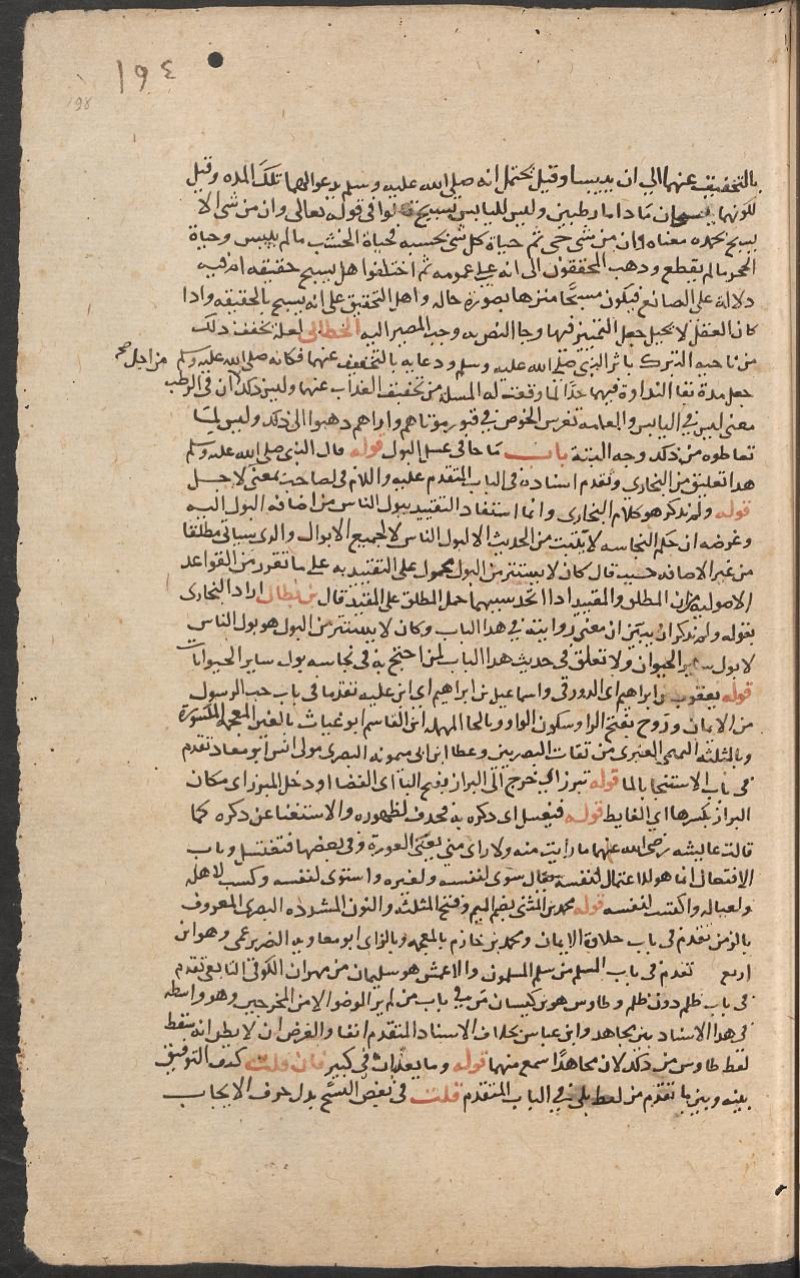 ١٩٤
198
بالتخفيف عنهما الى ان ييبسا وقيل يحتمل انه صلى الله عليه وسلم يدعو لهما تلك المده وقيل
لكونهما يسبحان مادامارطبين وليس لليابس تسبيح قالوا في قوله تعالى وان من شى الا
يسبح بحمده معناه وان من شى حى ثم حياة كل شى بحسبه فحياة الخشب مالم ييبس وحياة
الحجر مالم يقطع وذهب المحققون الى انه على عمومه ثم اختلفوا هل يسبح حقيقه ام فيه
دلالة على الصانع فيكون مسبحا منزها بصورة حاله واهل التحقيق على انه يسبح بالحقيقه واذا
كان العقل لا يحيل جعل التمييز فيها وجا النص به وجب المصير اليه الخطابى لعله يخفف ذلك
من ناحيه التبرك باثر النبي صلى الله عليه وسلم ودعايه بالتخفيف عنهما فكانه صلى الله عليه وسلم من اجل صح
جعل مدة بقا النداوة فيهما حدا لما وقعت له المسله من تخفيف العذاب عنهما وليس ذلك ان في الرطب
معنى ليس في اليابس والعامه تغرس الخوص في قبور موتاهم واراهم ذهبوا الى ذلك وليس لما
تعاطوه من ذلك وجه البتة باب ما جا في غسل البول قوله قال النبي صلى الله عليه وسلم
هذا تعليق من البخارى وتقدم اسناده فى الباب المتقدم عليه واللام في لصاحب بمعنى لاجل
قوله ولم يذكر هو كلام البخارى وانما استفاد التقييد ببول الناس من اضافه البول اليه
وغرضه ان حكم النجاسه لا يثبت من الحديث الا لبول الناس لا لجميع الابوال والذى سياتى مطلقا
من غير الاضافه حيث قال كان لا يستتر من البول محمول على التقييد به على ما تقرر من القواعد
الاصولية ان المطلق والمقيد اذا اتحد سببهما حمل المطلق على المقيد قال بن بطال اراد البخارى
بقوله ولم يذكر ان يبين ان معنى روايته في هذا الباب وكان لا يستتر من البول هو بول الناس
لا بول ساير الحيوان ولا تعلق فى حديث هذا الباب لمن احتج به في نجاسه بول ساير الحيوانات
قوله يعقوب بن ابراهيم اى الدورقى واسماعيل بن ابراهيم اى ابن عليه تقدما فى باب حب الرسول
من الايمان وروح بفتح الرا وسكون الواو وبالحا المهمله ابن القاسم ابو غياث بالغين المعجمه المكسورة
وبالمثلثه التميمى العنبرى من ثقات البصريين وعطا ابن ابى ميمونه البصرى مولى انس ابو معاذ تقدم
فى باب الاستنجا بالما قوله تبرز اى خرج الى البراز بفتح البا اى الفضا او دخل المبرز اى مكان
البراز بكسرها اى الغايط قوله فيغسل اى ذكره به فحذف لظهوره والاستغنا عن ذكره كما
قالت عايشه رضى الله عنها ما رايت منه ولا راى مني يعنى العورة وفي بعضها فتغتسل وباب
الافتعال انما هو للاعتمال لنفسه يقال سوى لنفسه ولغيره واستوى لنفسه وكسب لاهله
ولعياله واكتسب لنفسه قوله محمد بن المثنى بضم الميم وفتح المثلثه والنون المشدده البصرى المعروف
بالزمن تقدم فى باب حلاوة الايمان ومحمد بن خازم بالمعجمه وبالزاى ابو معاويه الضرير عمى وهو ابن
اربع تقدم فى باب المسلم من سلم المسلمون والاعمش هو سليمان من مهران الكوفى التابعى تقدم
فى باب ظلم دون ظلم وطاوس هو بن كيسان مر فى باب من لم ير الوضو الا من المخرجين وهو واسطه
في هذا الاسناد بين مجاهد وابن عباس بخلاف الاسناد المتقدم انفا والغرض ان لا يظن انه سقط
لفظ طاوس من ذلك لان مجاهدا سمع منهما قوله وما يعذبان في كبير فان قلت كيف التوفيق
بينه وبين ما تقدم من لفظ بلى في الباب المتقدم قلت في بعض النسخ بدل حرف الايجاب